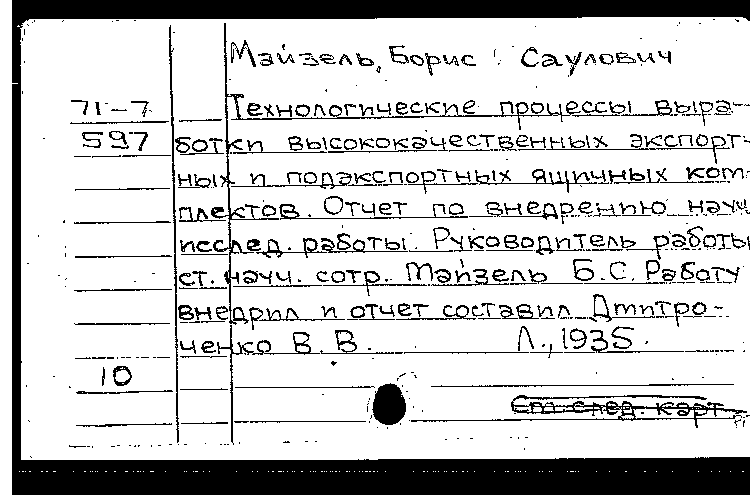 Мэйзель, Борис Саулович
71-7 Технологические процессы выра-
597 ботки высококачественных экспорт-
ных и подэкспортных ящичных ком-
плектов. Отчет по внедрению научн.
исслед. работы. Руководитель работы
ст. научн. сотр. Мэйзель Б.С. Работу
внедрил и отчет составил Дмитро-
ченко В. В. Л., 1935.
10
См след. карт.